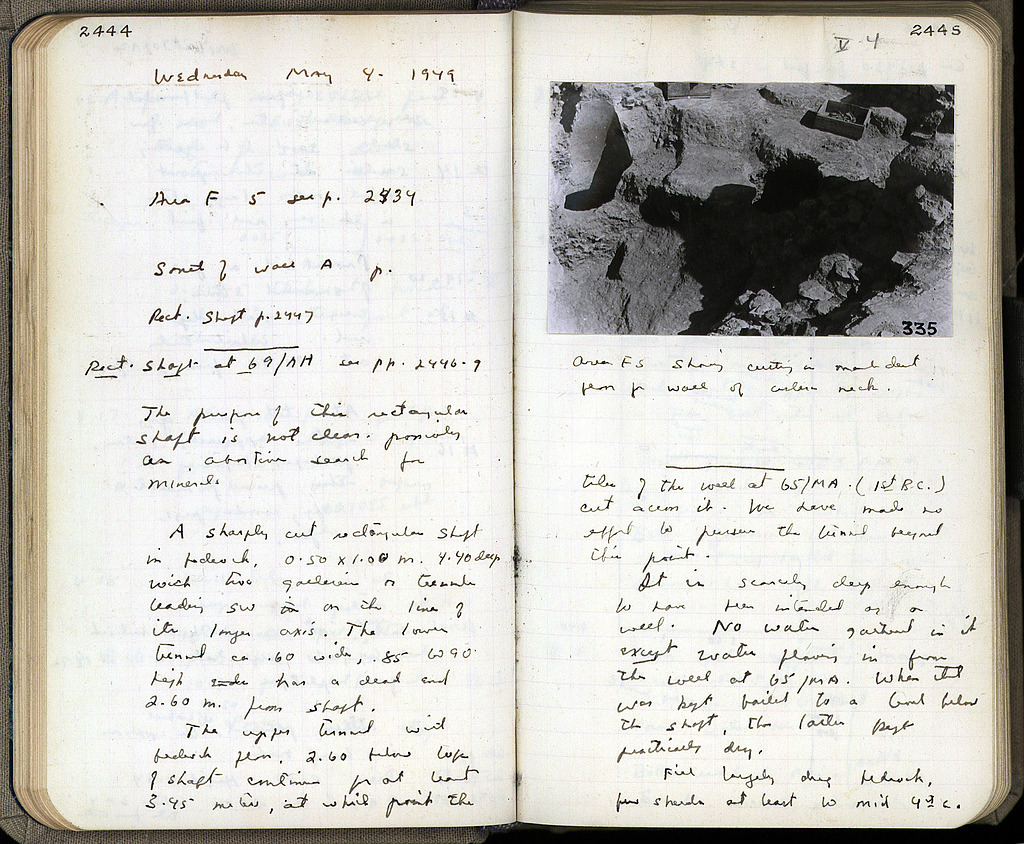 2444
Wednesday May 4. 1949
Area F 5 see p. 2434
South of wall A p.
Rect. Shaft p. 2447
Rect. Shaft at 69/ see pp. 2446-9
The purpose of this rectangular
shaft is not clear. possibly
an abortive search for
minerals
A sharply cut rectangular shaft
in bedrock, 0.50 x 1.00 m. 4.40 deep
with two galleries or tunnels
leading SW on the line of
its longer axis. The lower
tunnel ca .60 wide, .85 to 90
high has a dead end
2.60 m. from shaft.
The upper tunnel with
bedrock floor, 2.60 below top
of shaft continues for at least
3.45 meters, at which point the
2445
V-4
335
Area F5 showing cutting in
from for wall of cistern neck.
tiles of the well at 65/MA. (1st B.C.)
cut across it. We have made no
effort to pursue the tunnel beyond
this point.
It is scarcely deep enough
to have been intended as a
well. No water gathered in it
except water flowing in from
the well at 65/MA. When that
was kept bailed to a level below
the shaft, the latter kept
practically dry.
Fill largely dug bedrock,
few sherds at least to mid 4th c.